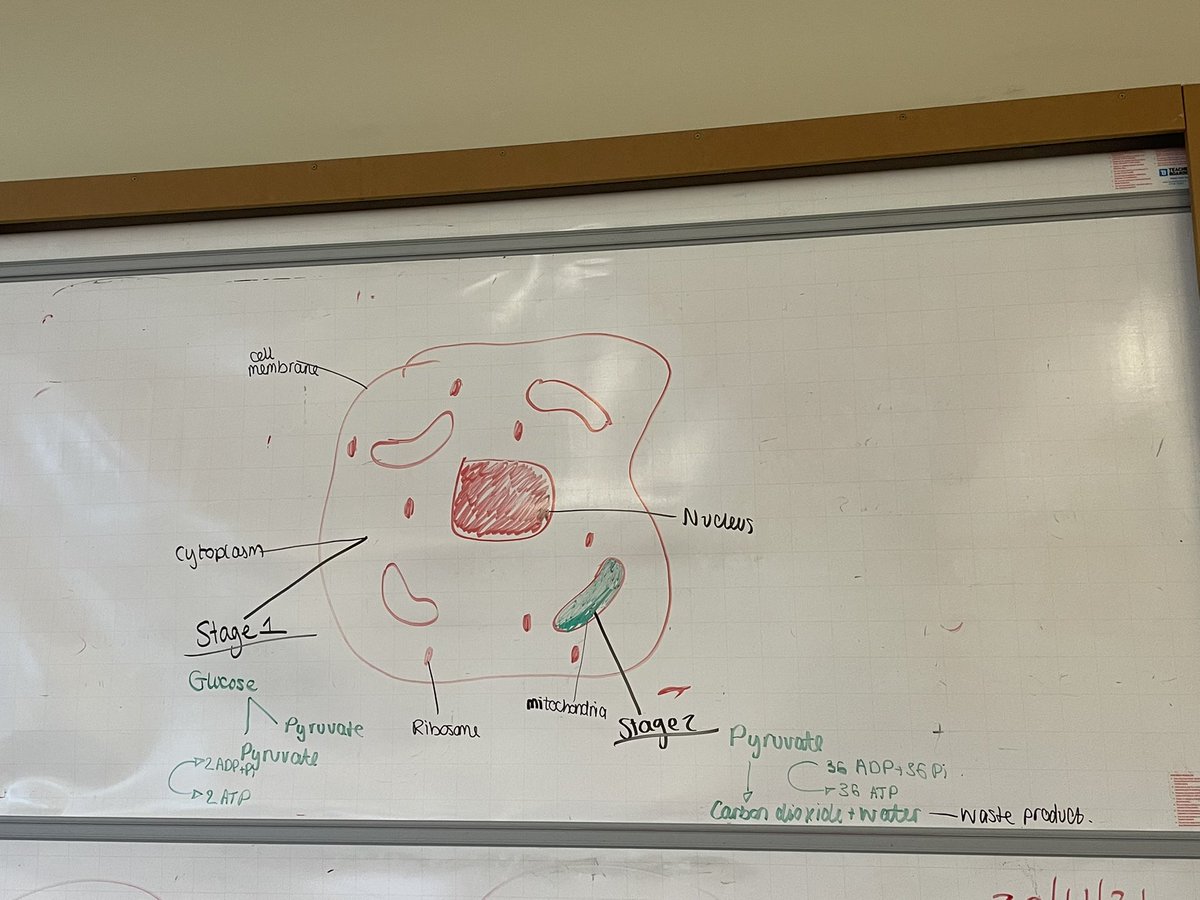 cell
membrane
Nucleus
Cytoplasm
Stage 1
Glucose
Pyruvate
Pyruvate
2 ADP+Pi
2 ATP
Ribosome
mitochondria
Stage 2
Pyruvate
36 ADP+36 Pi
36 ATP
Carbon dioxide + water — waste product.